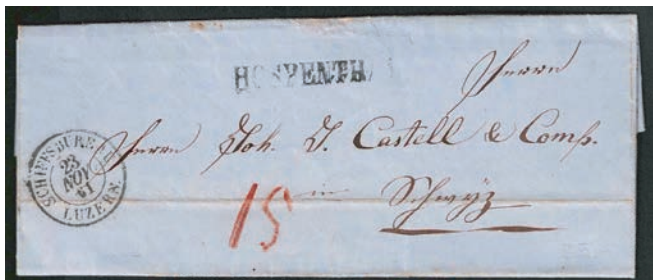 HOSPENTHAL
Herrn
Herrn Joh. J. Castell & Comp.
in
Schwÿz
SCHIFFSBUREAU
23
NOV
61
LUZERN.
15